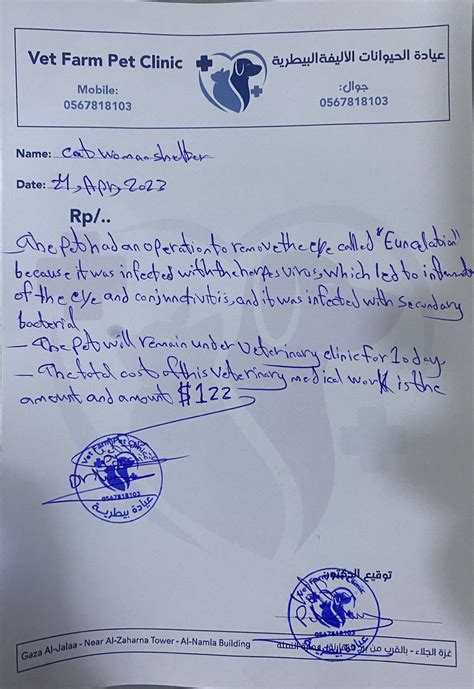 Vet Farm Pet Clinic
عيادة الحيوانات الاليفة البيطرية
Mobile:
0567818103
جوال:
0567818103
Name: cat woman shelter
Date: 21, Apr, 2023
Rp/..
The pet had an operation to remove the eye called "Euncelation"
because it was infected with the herpes virus, which led to
of the eye and conjunctivitis, and it was infected with secondary
bacterial
- The pet will remain under veterinary clinic for 10 day
- The total cost of this veterinary medical work is the
amount and amount $122
Vet Farm Pet Clinic
0567818103
عيادة بيطرية
توقيع الدكتور
Vet Farm Pet Clinic
0567818103
عيادة بيطرية
Gaza Al-Jalaa - Near Al-Zaharna Tower - Al-Namla Building
غزة الجلاء - بالقرب من برج